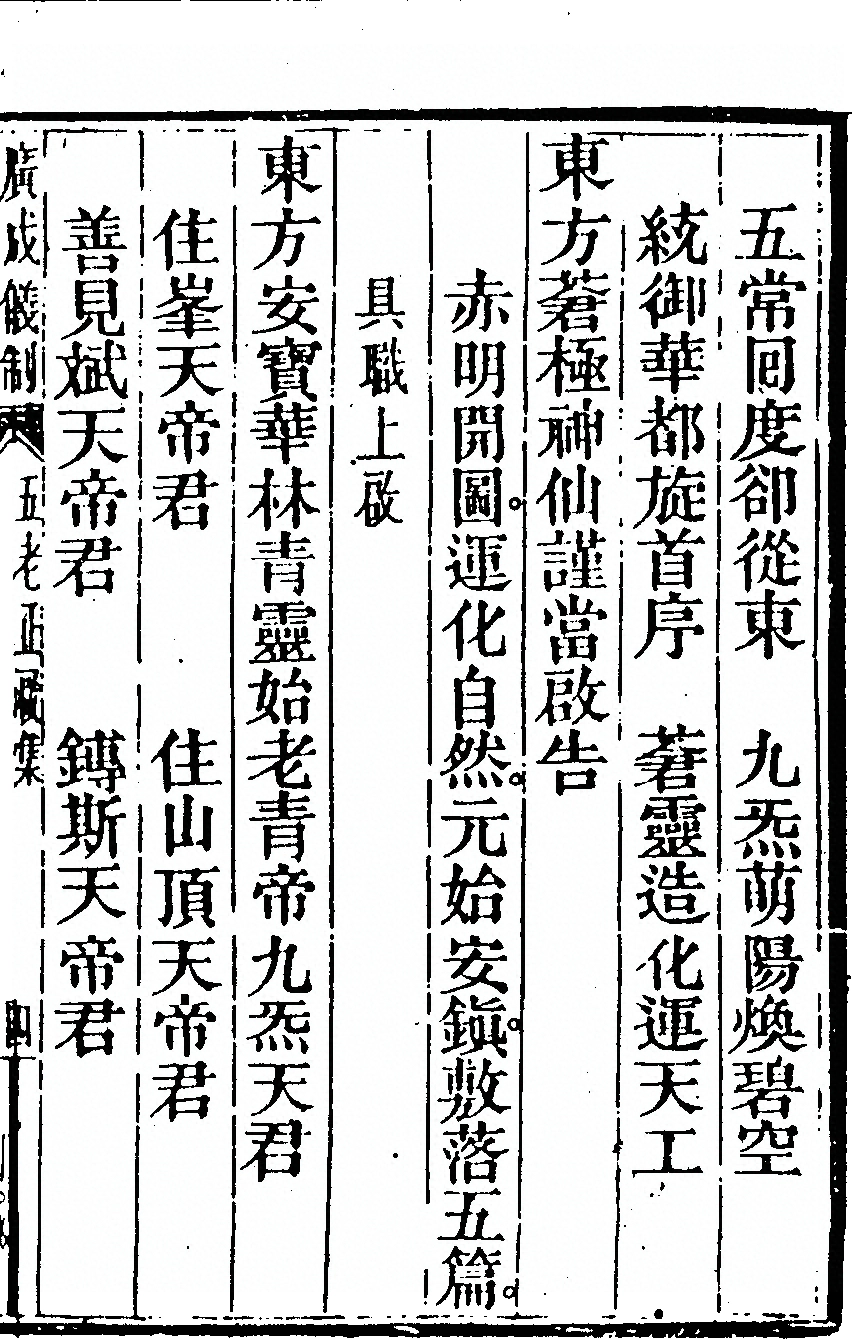 五常囘度卻從東　九炁萌陽煥碧空
統御華都旋首序　蒼靈造化運天工
東方蒼極神仙謹當啟告
赤明開圖。運化自然。元始安鎭。敷落五篇。
具職上啟
東方安寶華林青靈始老青帝九炁天君
住峯天帝君　住山頂天帝君
善見斌天帝君　鎛斯天帝君
廣成儀制　五老正藏集　四